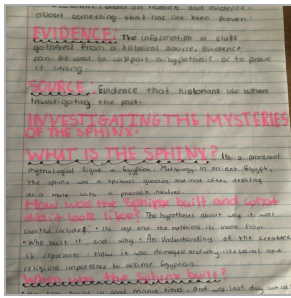 about something that has not been proven.
EVIDENCE: The information or clues
gathered from a historical source. Evidence
can be used to support a hypothesis or to prove
it wrong.
SOURCE: Evidence that historians use when
investigating the past.
INVESTIGATING THE MYSTERIES
OF THE SPHINX.
WHAT IS THE SPHINX? Its a prominent
mythological figure in Egyptian. Meaning in ancient Egypt,
the sphinx was a spiritual guardian and most often depicted
as a male with a pharaoh's headdress.
How was the Sphinx built and what
did it look like? The hypotheses about why it was
created includes Its age and the materials its made from
Who built it and why. An Understanding of the creature
it represents. How it was damaged and why. Its social and
religious importance to ancient Egyptians.
When was the Sphinx built?
built many times and was last dug out